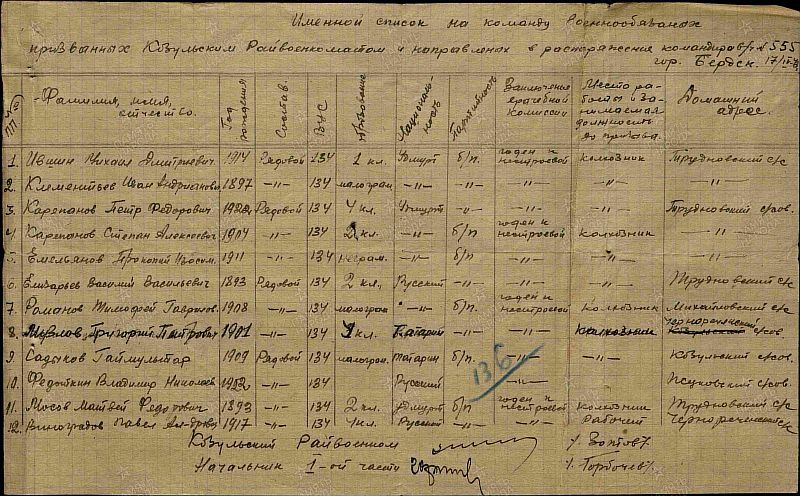 Именной список на команду военнообязаных
призванных Козульским Райвоенкоматом и направленых в распоряжение командира в/ч № 555
гор. Бердск. 17/
№ пп Фамилия, имя, отчество. Год рождения Состав. ВУС Образование Национальность Партийность Заключение врачебной комиссии Место работы и занимаемая должность до призыва. Домашний адрес.
1. Ившин Михаил Дмитриевич. 1914 Рядовой 134 1 кл. Удмурт б/п. годен к нестроевой колхозник Трудновский с/с
2. Клементьев Иван 1897 -"- 134 малограм -"- -"- -"- -"-
3. Карепанов Петр Федорович. Рядовой 134 4 кл. Удмурт -"- -"- Трудновский с/сов.
4. Карепанов Степан Алексеевич 1904 -"- 134 2 кл. -"- б/п годен к нестроевой колхозник -"-
5. Емельянов Прокопий 1911 -"- 134 неграм. -"- б/п -"- -"- -"-
6. Елизарьев Василий Васильевич 1893 Рядовой 134 2 кл. Русский -"- -"- Трудновский с/с
7. Романов Тимофей Гаврилов. 1908 -"- 134 малограм -"- б/п. годен к нестроевой колхозник Михайловский с/с
8. Григорий 1901 -"- 134 кл. Татарин колхозник Чернореченский с/сов
9. Садыков Гаймультар 1909 Рядовой 134 малограм. татарин б/п. -"- Козульский с/сов.
10. Федоткин Владимир Николаев -"- 134 Русский -"- с/сов.
11. Мосов Матвей Федотович 1893 -"- 134 2 кл. Удмурт б/п годен к нестроевой колхозник Трудновский с/с
12. Виноградов Павел Андреев 1917 -"- 134 4 кл. Русский -"- рабочий Чернореченский
136
Козульский Райвоенком
Начальник 1-ой части /Горбачев/